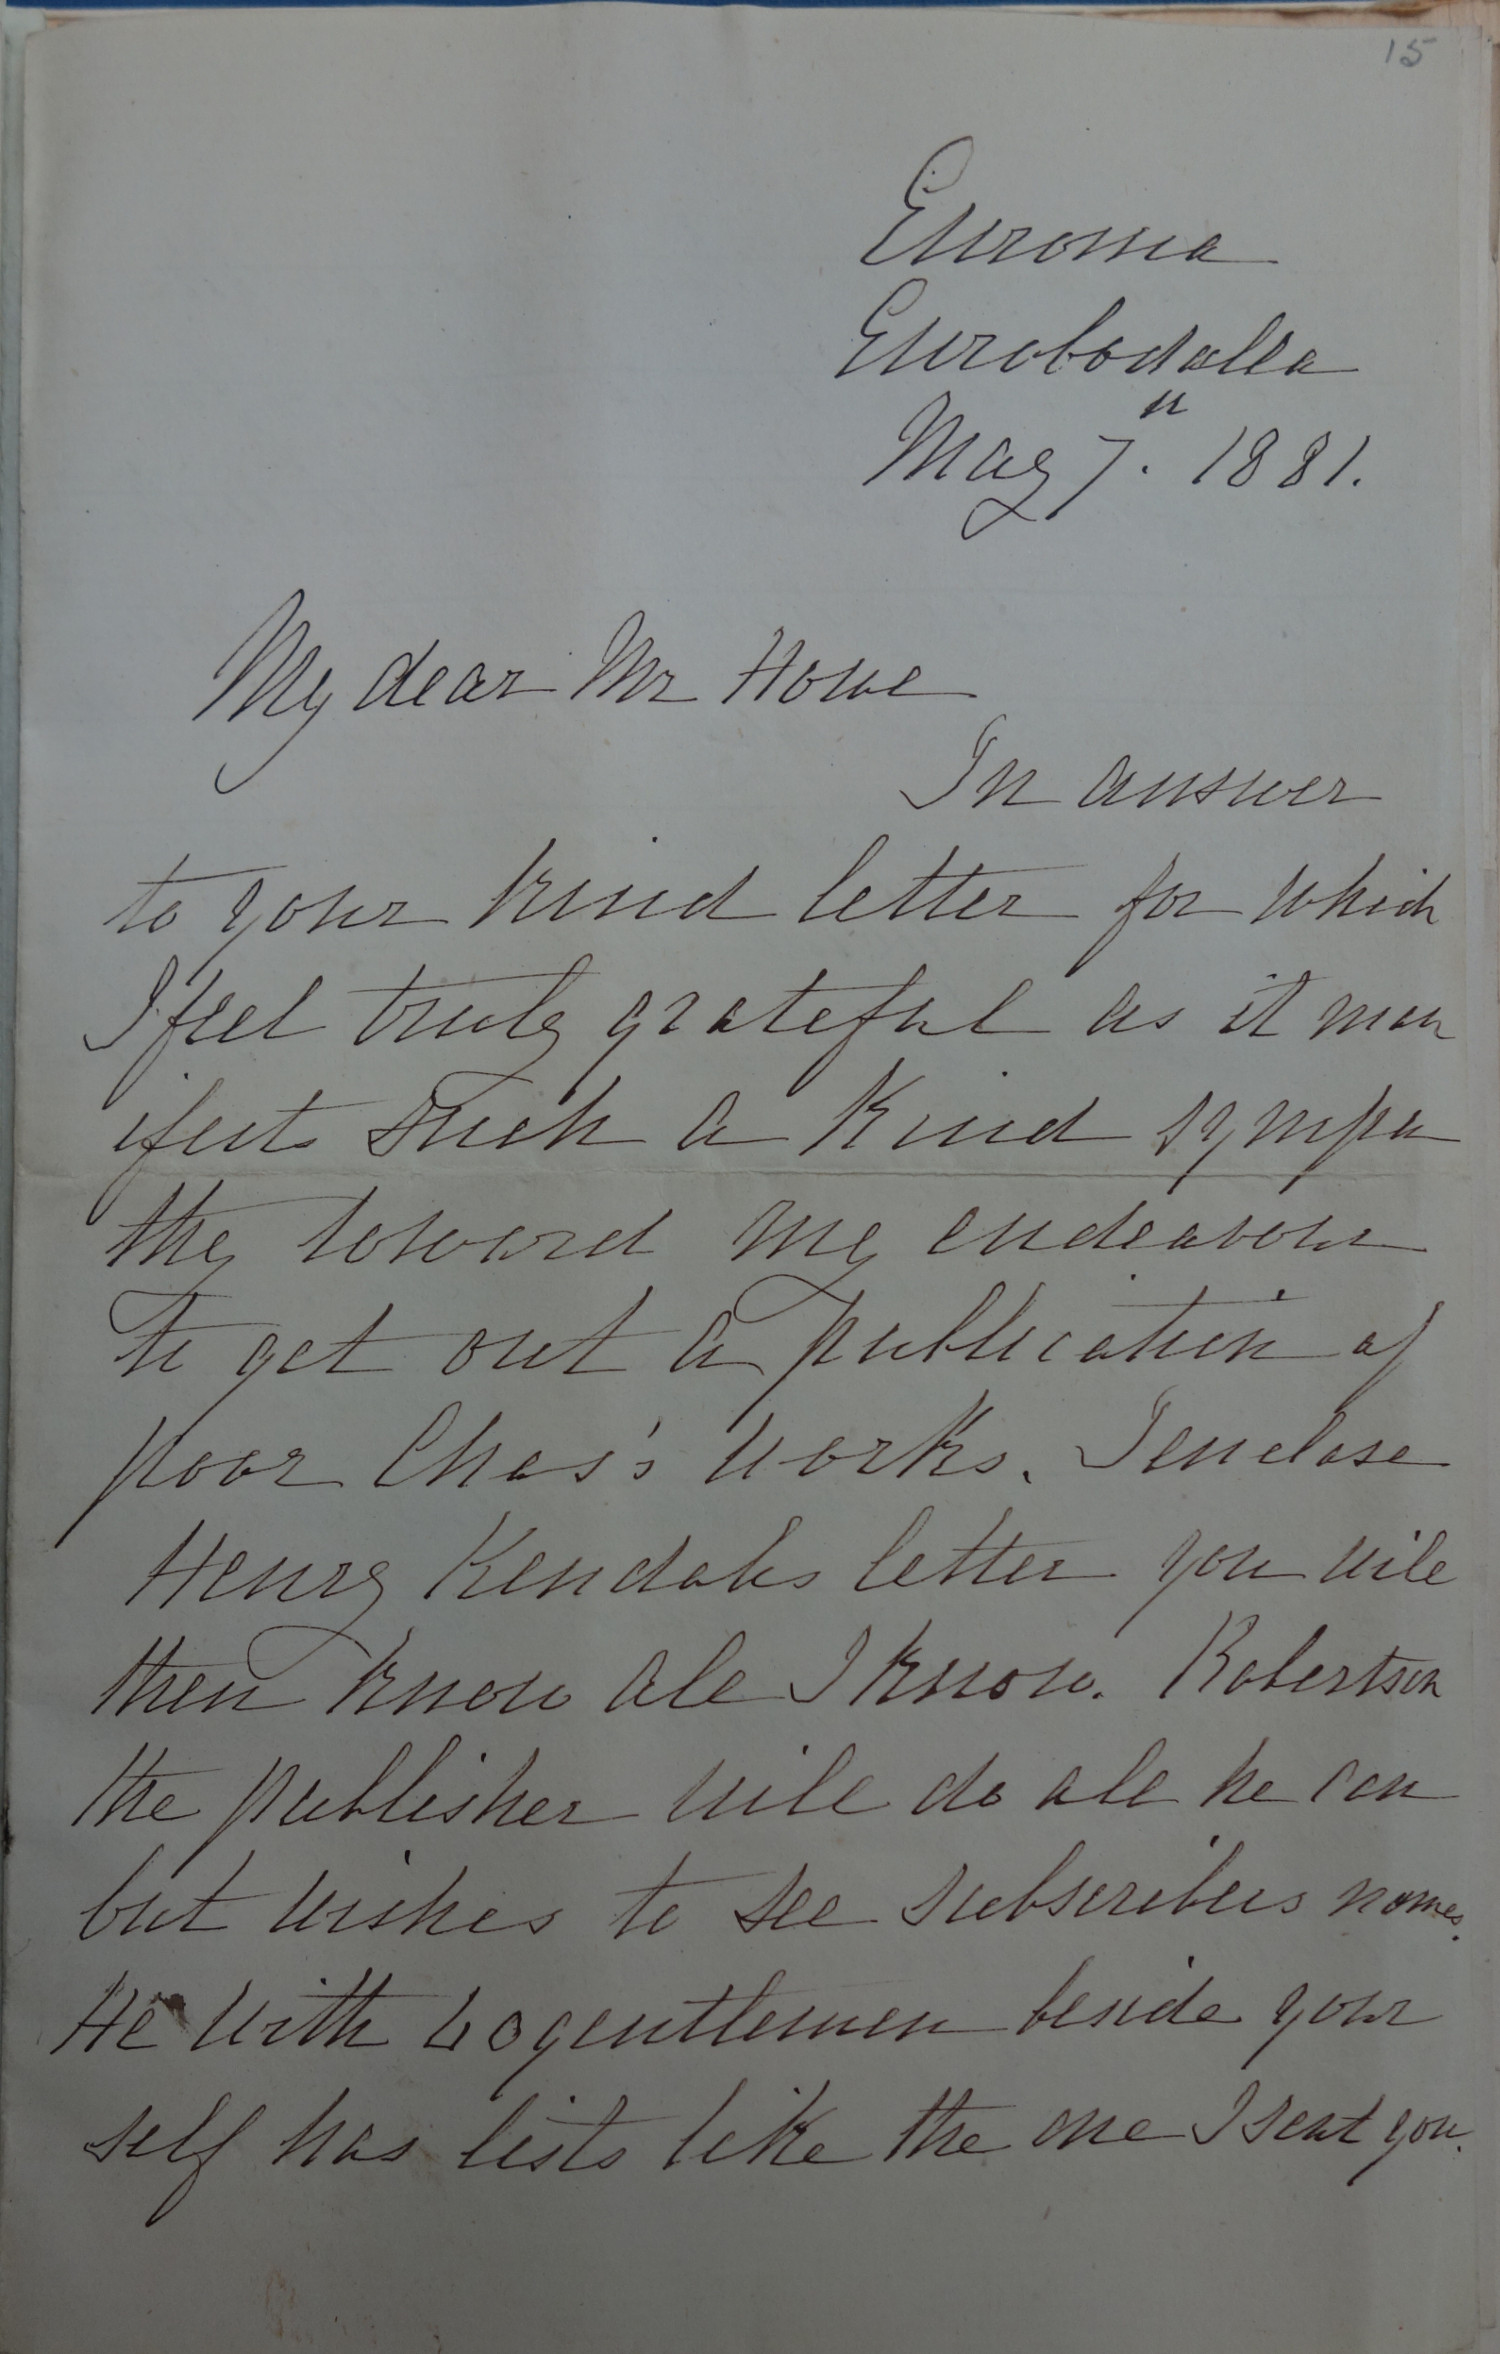 15
Euroma
Eurobodalla
May 7". 1881.
My dear Mr Howe
In answer
to your kind letter for which
I feel truly grateful as it man
ifests such a kind sympa
thy toward my endeavour
to get out a publication of
poor Chas's works. I enclose
Henry Kendalls letter you will
then know all I know. Robertson
the publisher will do all he can
but wishes to see subscribers names.
He with 40 gentlemen beside your
self has lists like the one I sent you.